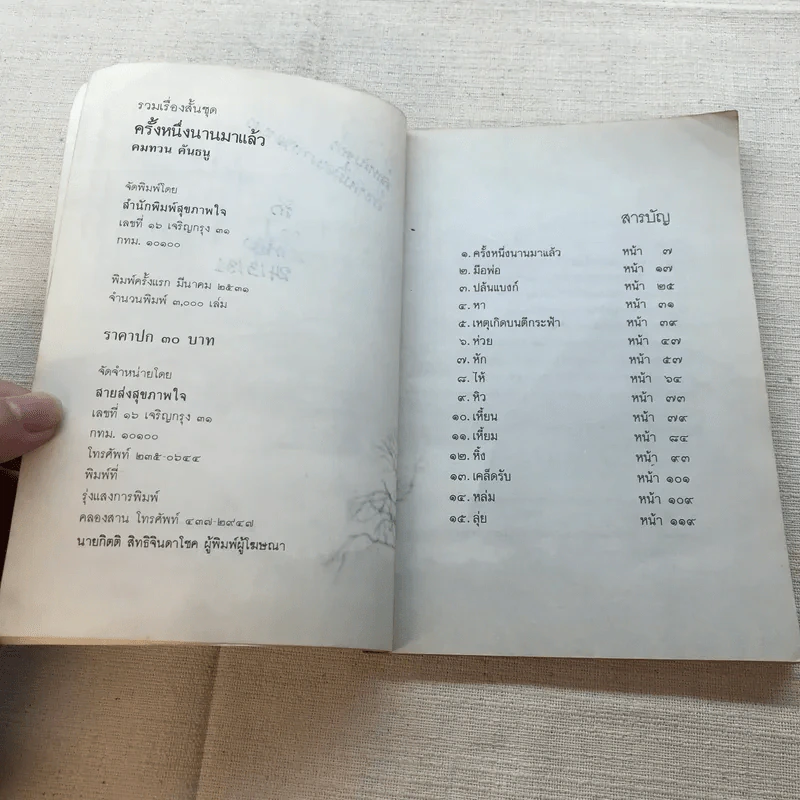 รวมเรื่องสั้นชุด
ครั้งหนึ่งนานมาแล้ว
คมทวน คันธนู
จัดพิมพ์โดย
สำนักพิมพ์สุขภาพใจ
เลขที่ ๑๖ เจริญกรุง ๓๑
กทม. ๑๐๑๐๐
พิมพ์ครั้งแรก มีนาคม ๒๕๓๑
จำนวนพิมพ์ ๓,๐๐๐ เล่ม
ราคาปก ๓๐ บาท
จัดจำหน่ายโดย
สายส่งสุขภาพใจ
เลขที่ ๑๖ เจริญกรุง ๓๑
กทม. ๑๐๑๐๐
โทรศัพท์ ๒๓๕-๐๖๔๔
พิมพ์ที่
รุ่งแสงการพิมพ์
คลองสาน โทรศัพท์ ๔๓๗-๒๙๔๗
นายกิตติ สิทธิจินดาโชค ผู้พิมพ์ผู้โฆษณา
สารบัญ
๑. ครั้งหนึ่งนานมาแล้ว หน้า ๗
๒. มือพ่อ หน้า ๑๗
๓. ปล้นแบงก์ หน้า ๒๕
๔. หา หน้า ๓๑
๕. เหตุเกิดบนตึกระฟ้า หน้า ๓๙
๖. ห่วย หน้า ๔๗
๗. หัก หน้า ๕๗
๘. ไห้ หน้า ๖๔
๙. หิว หน้า ๗๓
๑๐. เหี้ยน หน้า ๗๙
๑๑. เหี้ยม หน้า ๘๔
๑๒. หิ้ง หน้า ๙๓
๑๓. เคล็ดรับ หน้า ๑๐๑
๑๔. หล่ม หน้า ๑๐๙
๑๕. ลุ่ย หน้า ๑๑๙